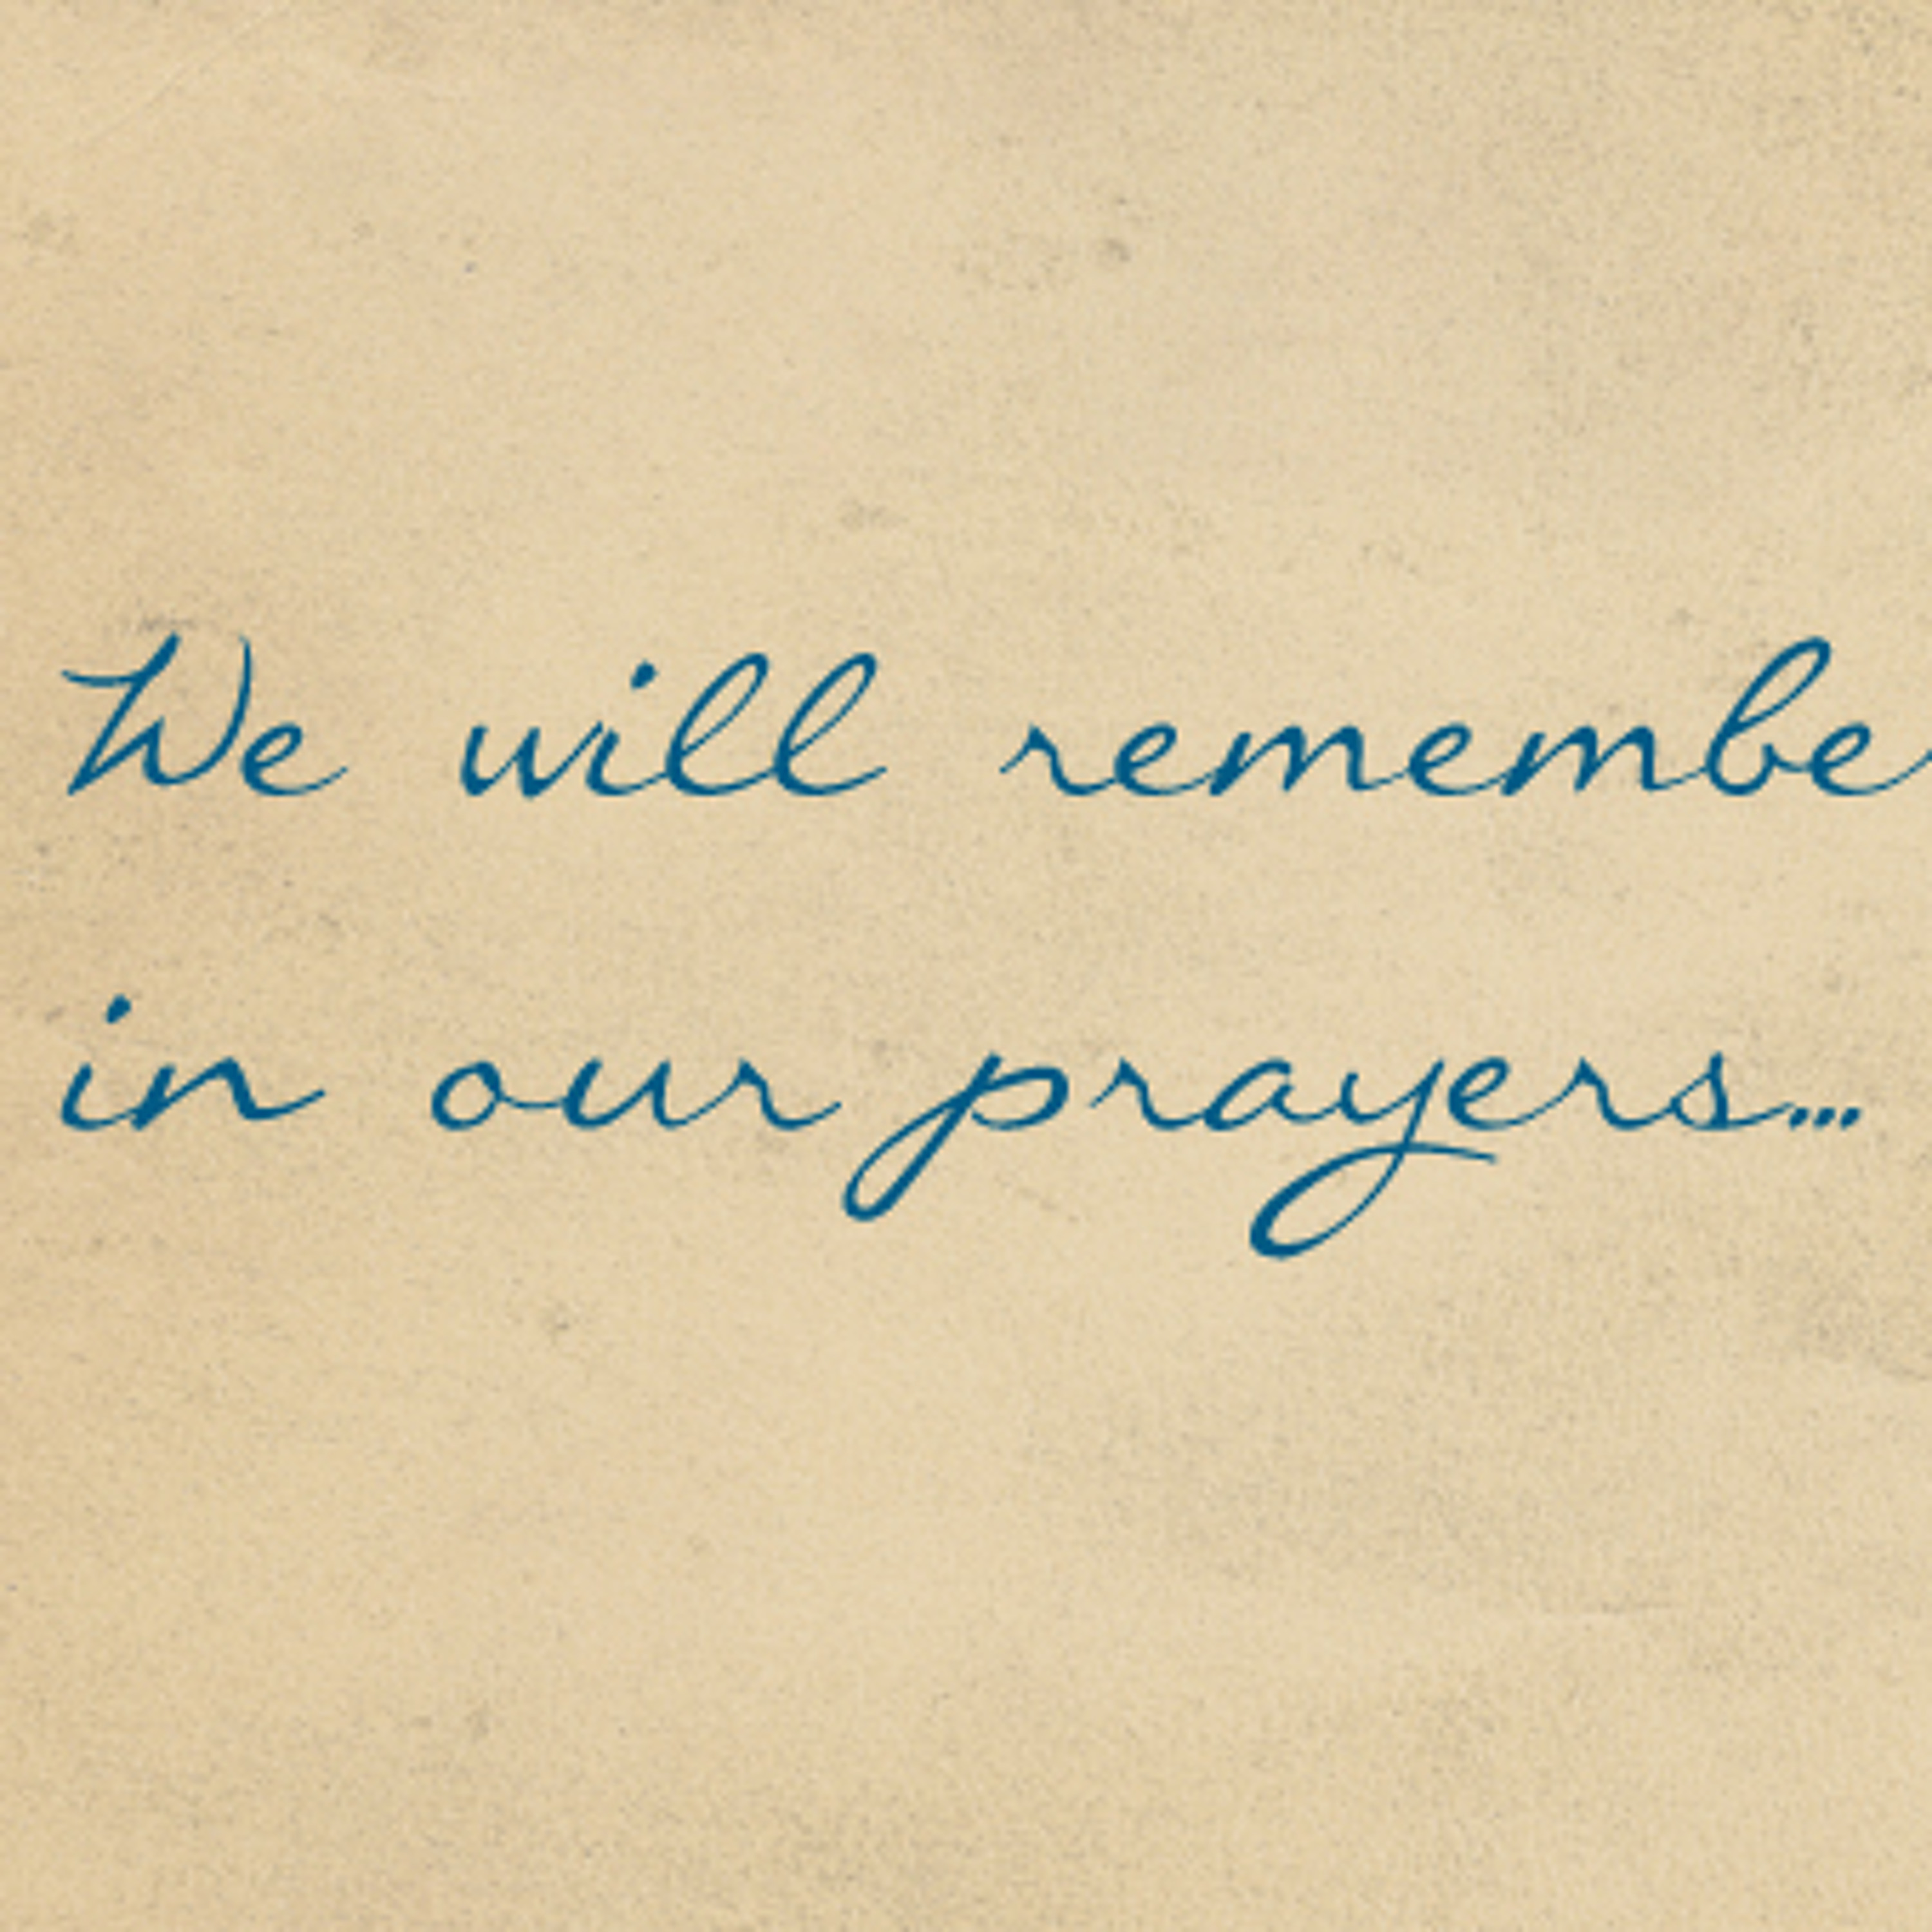 We will remembe
in our prayers...